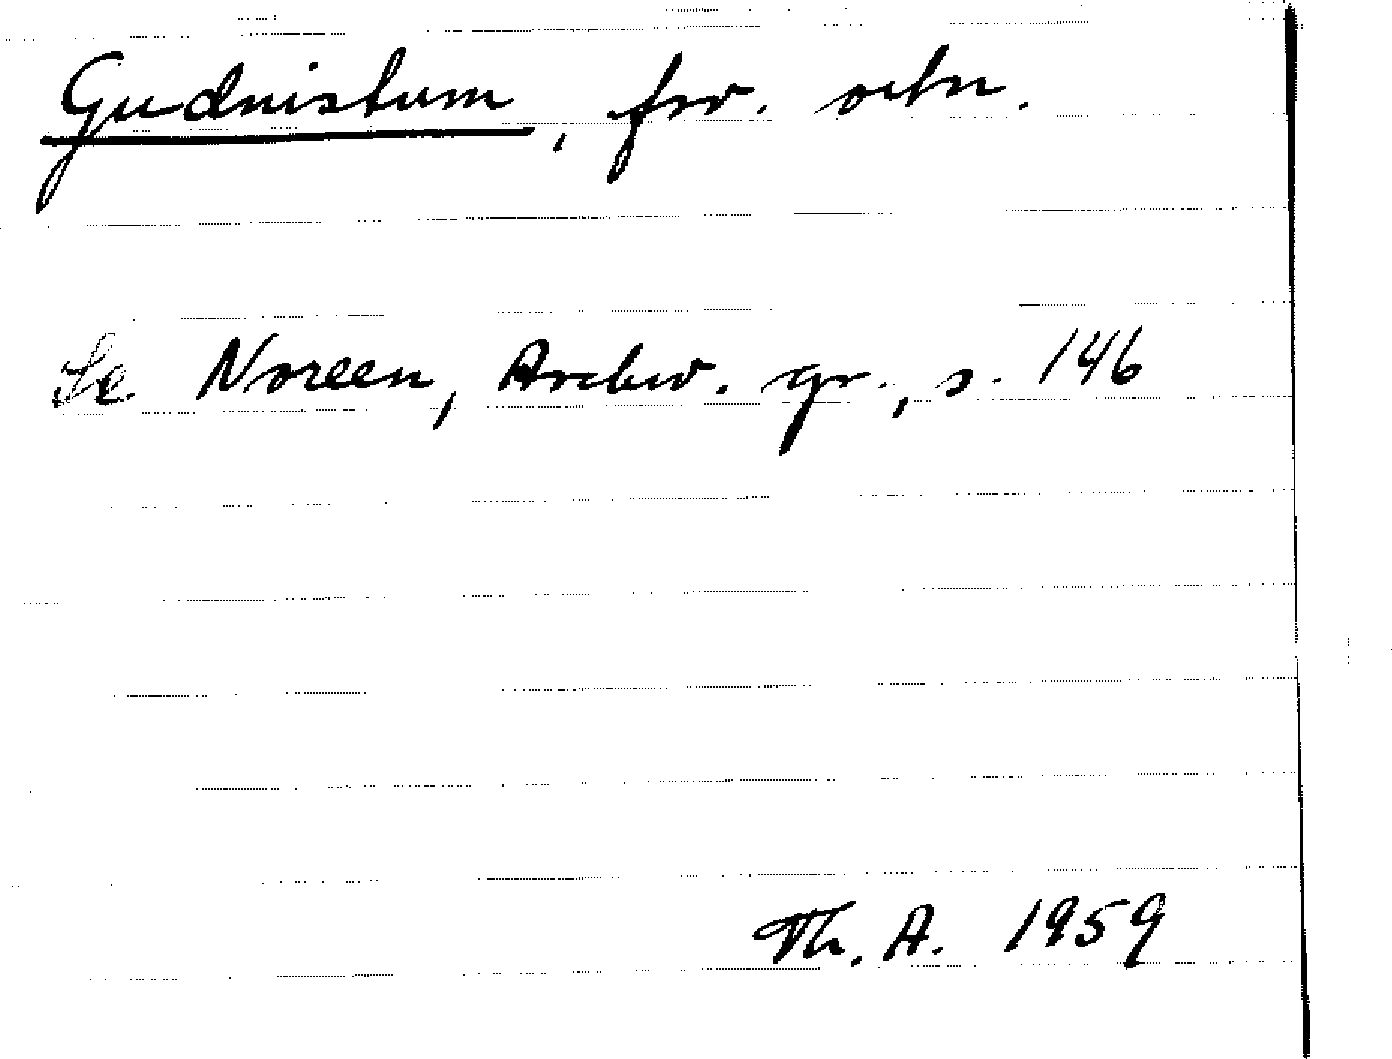 Gudnistum, fsv. ortn.
Se Noreen, Aschw. gr., s. 146
Th. A. 1959